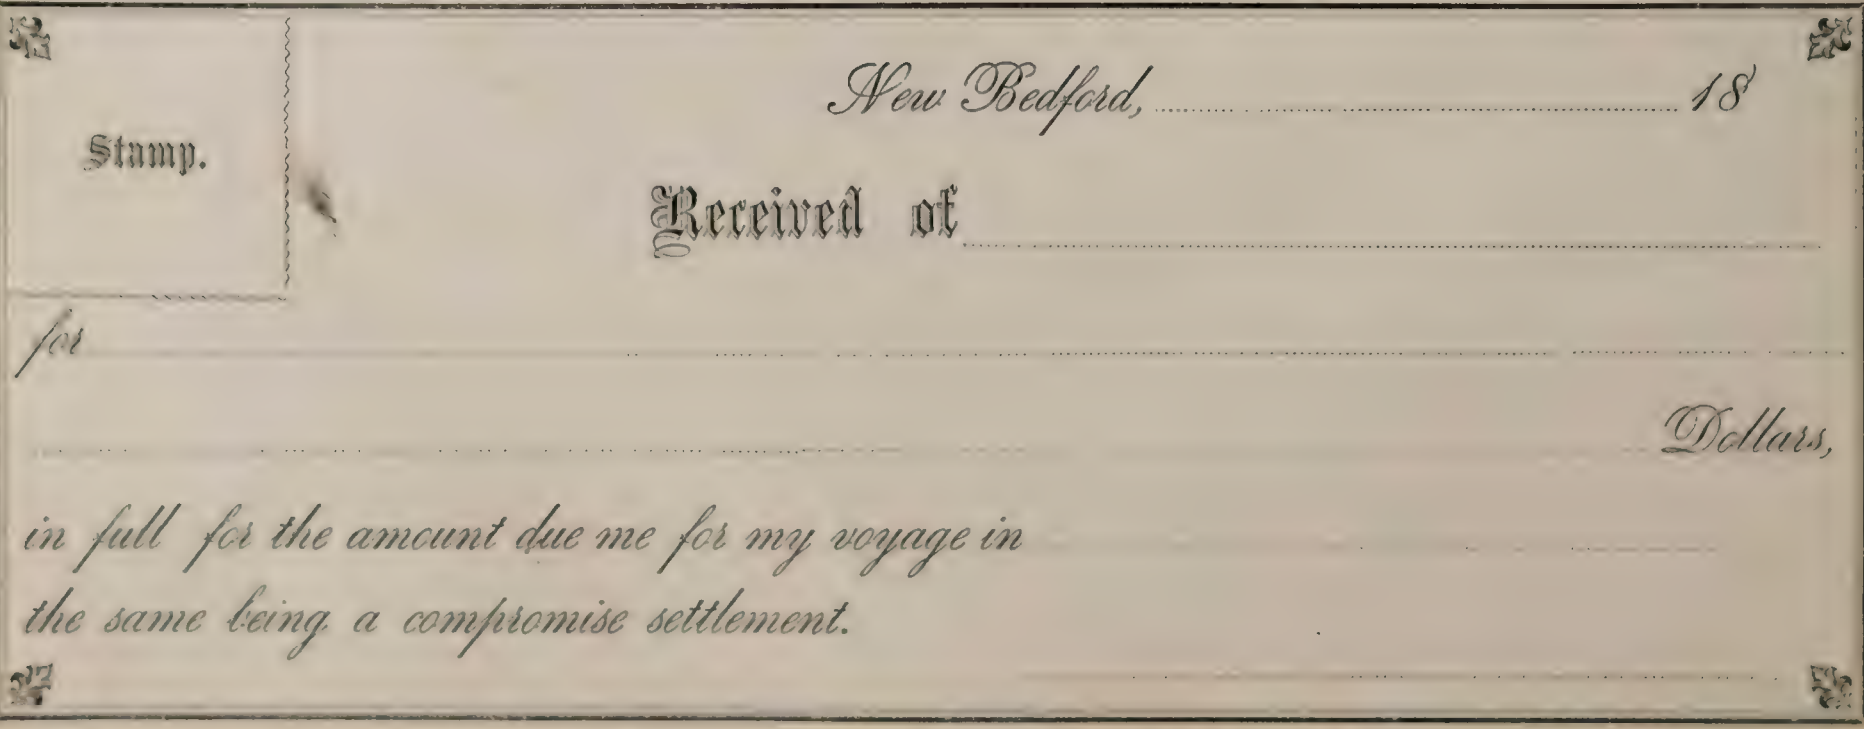 New Bedford, 18
Stamp.
Received of
for
Dollars,
in full for the amount due me for my voyage in
the same being a compromise settlement.